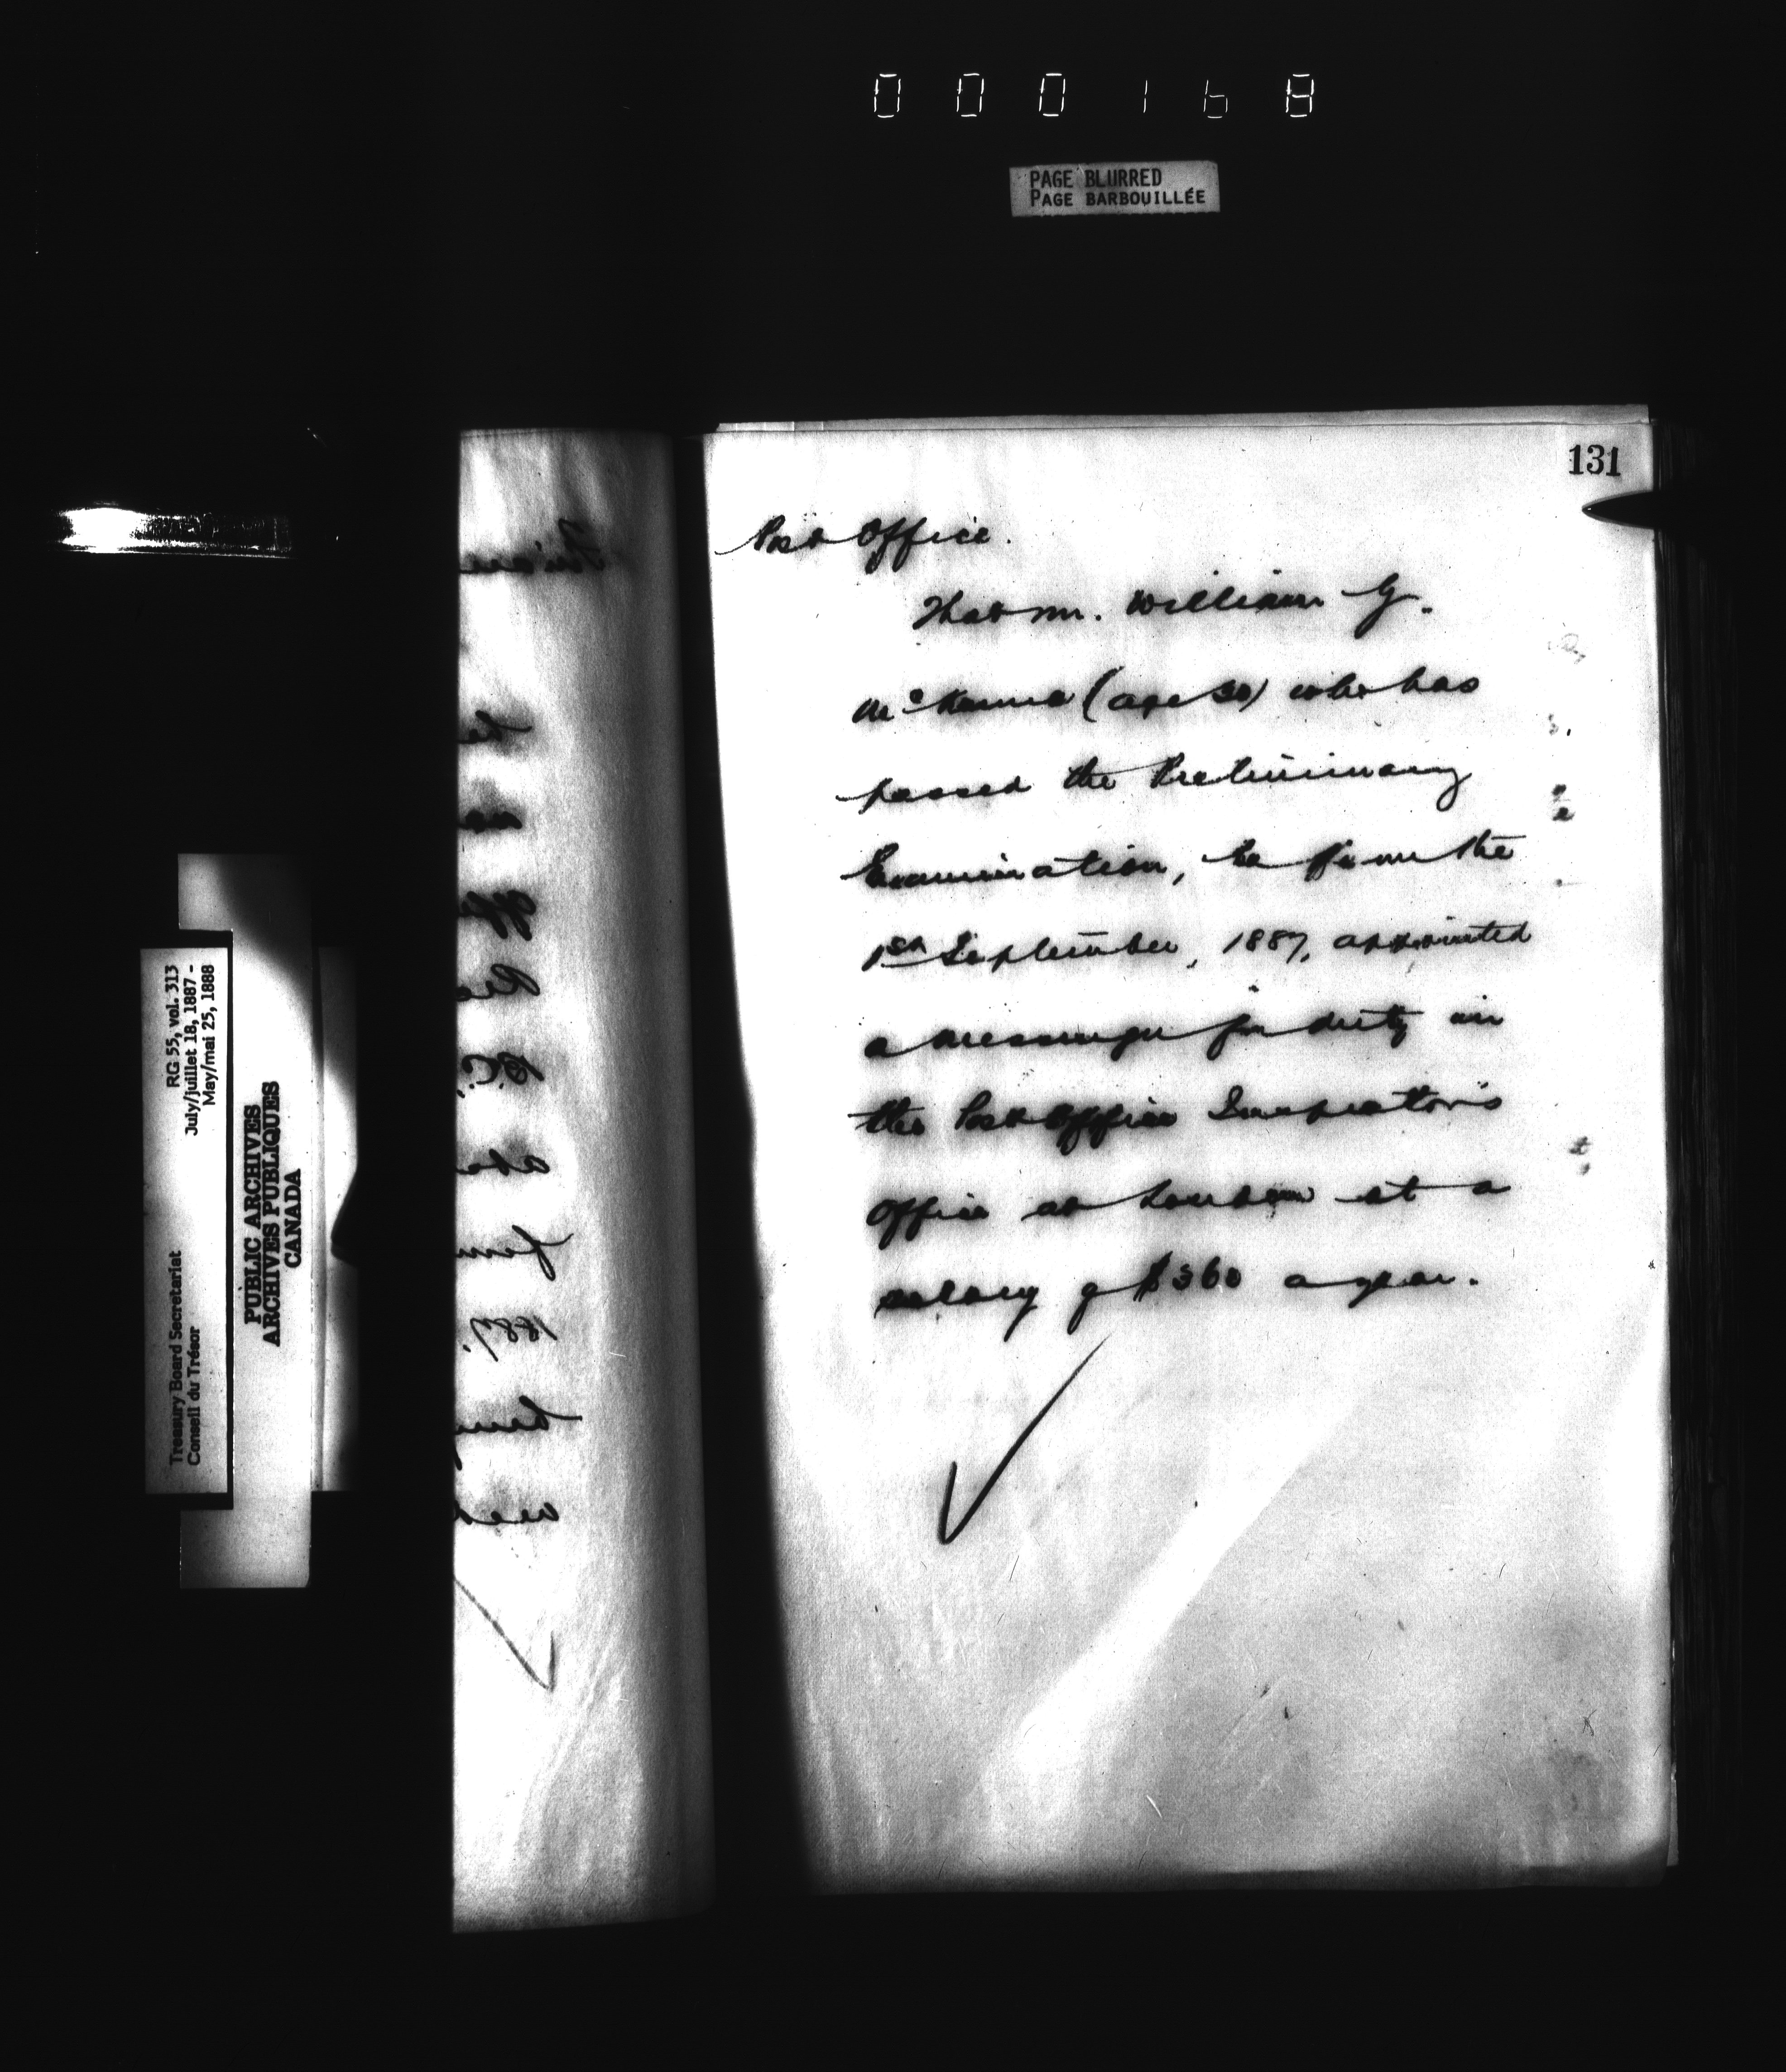 000168
PAGE BLURRED
PAGE BARBOUILLÉE
131
Post Office.
That Mr. William G.
McKenna (age 30) who has
passed the Preliminary
Examination, be from the
1st September, 1887, appointed
a messenger for duty in
the Post Office Inspector's
Office at London at a
salary of $360 a year.
RG 55, vol. 313
July/juillet 18, 1887 -
May/mai 25, 1888
Treasury Board Secretariat
Conseil du Trésor
PUBLIC ARCHIVES
ARCHIVES PUBLIQUES
CANADA